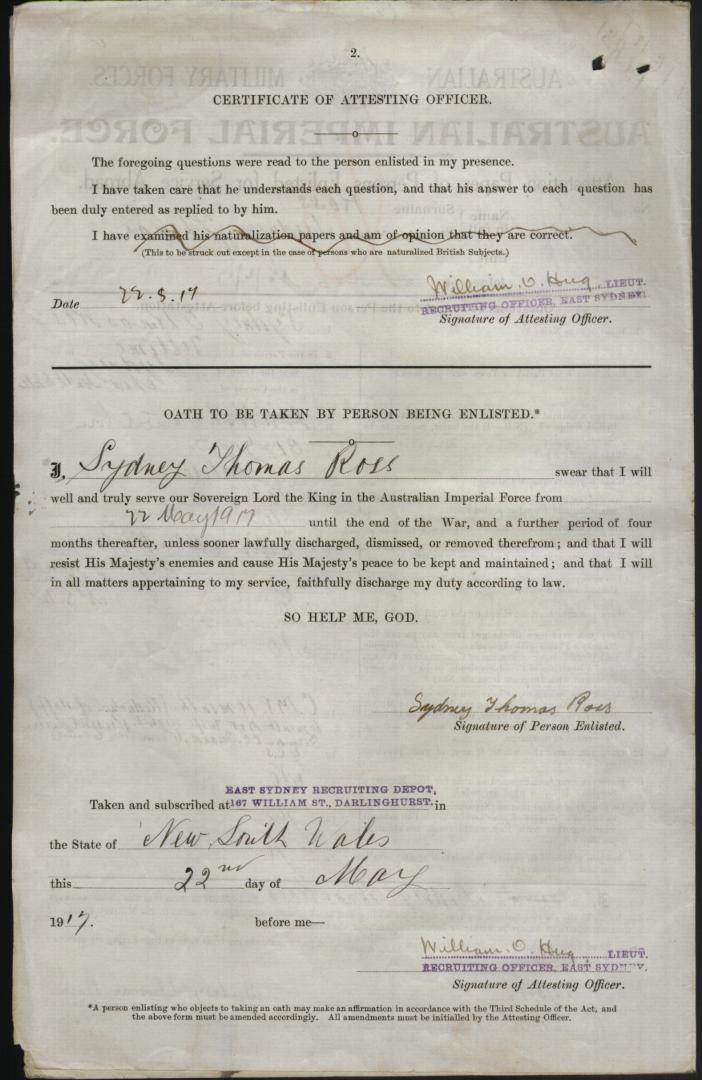 2.
CERTIFICATE OF ATTESTING OFFICER.
The foregoing questions were read to the person enlisted in my presence.
I have taken care that he understands each question, and that his answer to each question has
been duly entered as replied to by him.
I have examined his naturalization papers and am of opinion that they are correct.
(This to be struck out except in the case of persons who are naturalized British Subjects.)
Date 22.5.17 William. O. Hug LIEUT.
RECRUITING OFFICER, EAST SYDNEY.
Signature of Attesting Officer.
OATH TO BE TAKEN BY PERSON BEING ENLISTED.*
I, Sydney Thomas Ross swear that I will
well and truly serve our Sovereign Lord the King in the Australian Imperial Force from
22 May 1917 until the end of the War, and a further period of four
months thereafter, unless sooner lawfully discharged, dismissed, or removed therefrom; and that I will
resist His Majesty's enemies and cause His Majesty's peace to be kept and maintained; and that I will
in all matters appertaining to my service, faithfully discharge my duty according to law.
SO HELP ME, GOD.
Sydney Thomas Ross
Signature of Person Enlisted.
EAST SYDNEY RECRUITING DEPOT,
Taken and subscribed at 167 WILLIAM ST., DARLINGHURST. in
the State of New South Wales
this 22nd day of May
1917. before me—
William. O. Hug LIEUT.
RECRUITING OFFICER, EAST SYDNEY.
Signature of Attesting Officer.
*A person enlisting who objects to taking an oath may make an affirmation in accordance with the Third Schedule of the Act, and
the above form must be amended accordingly. All amendments must be initialled by the Attesting Officer.